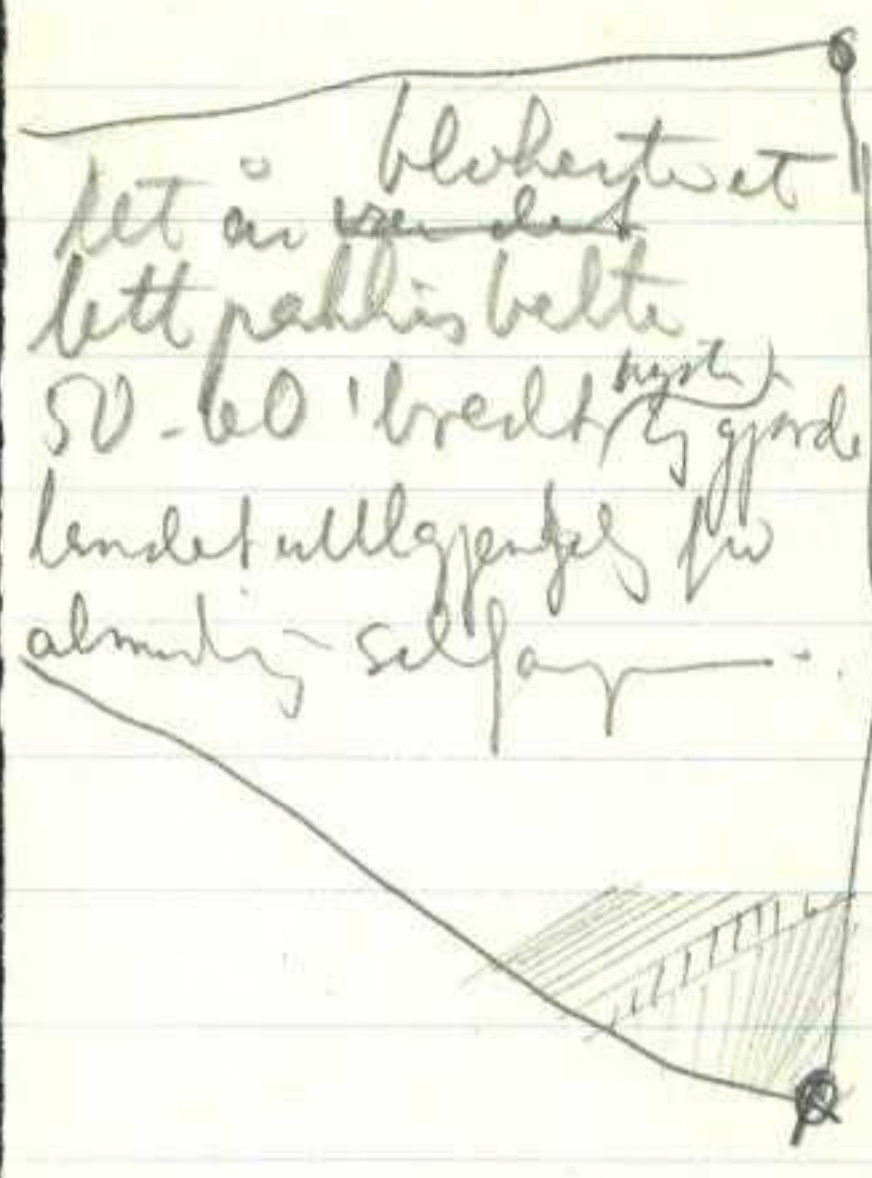 blokerte et
det år ven det
tett pakkis belte
50-60' bredt og gjorde
landet utilgjengelig for
almindelig selfang